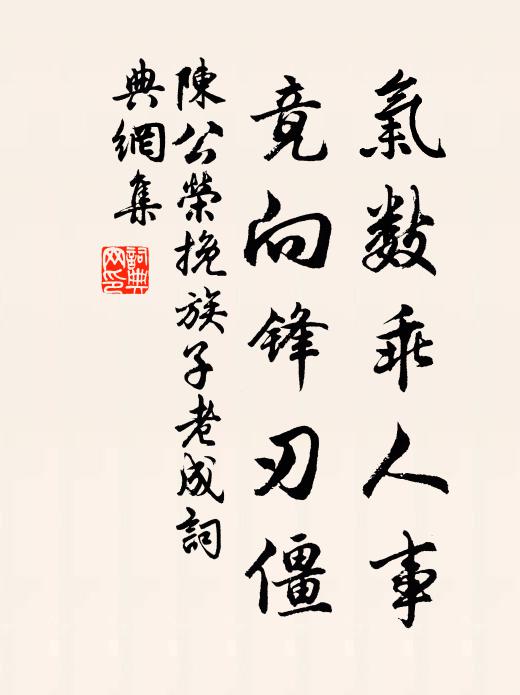 氣數乖人事
竟向鋒刃僵
陳公榮挽族子老成詞
典網集
詞典网印